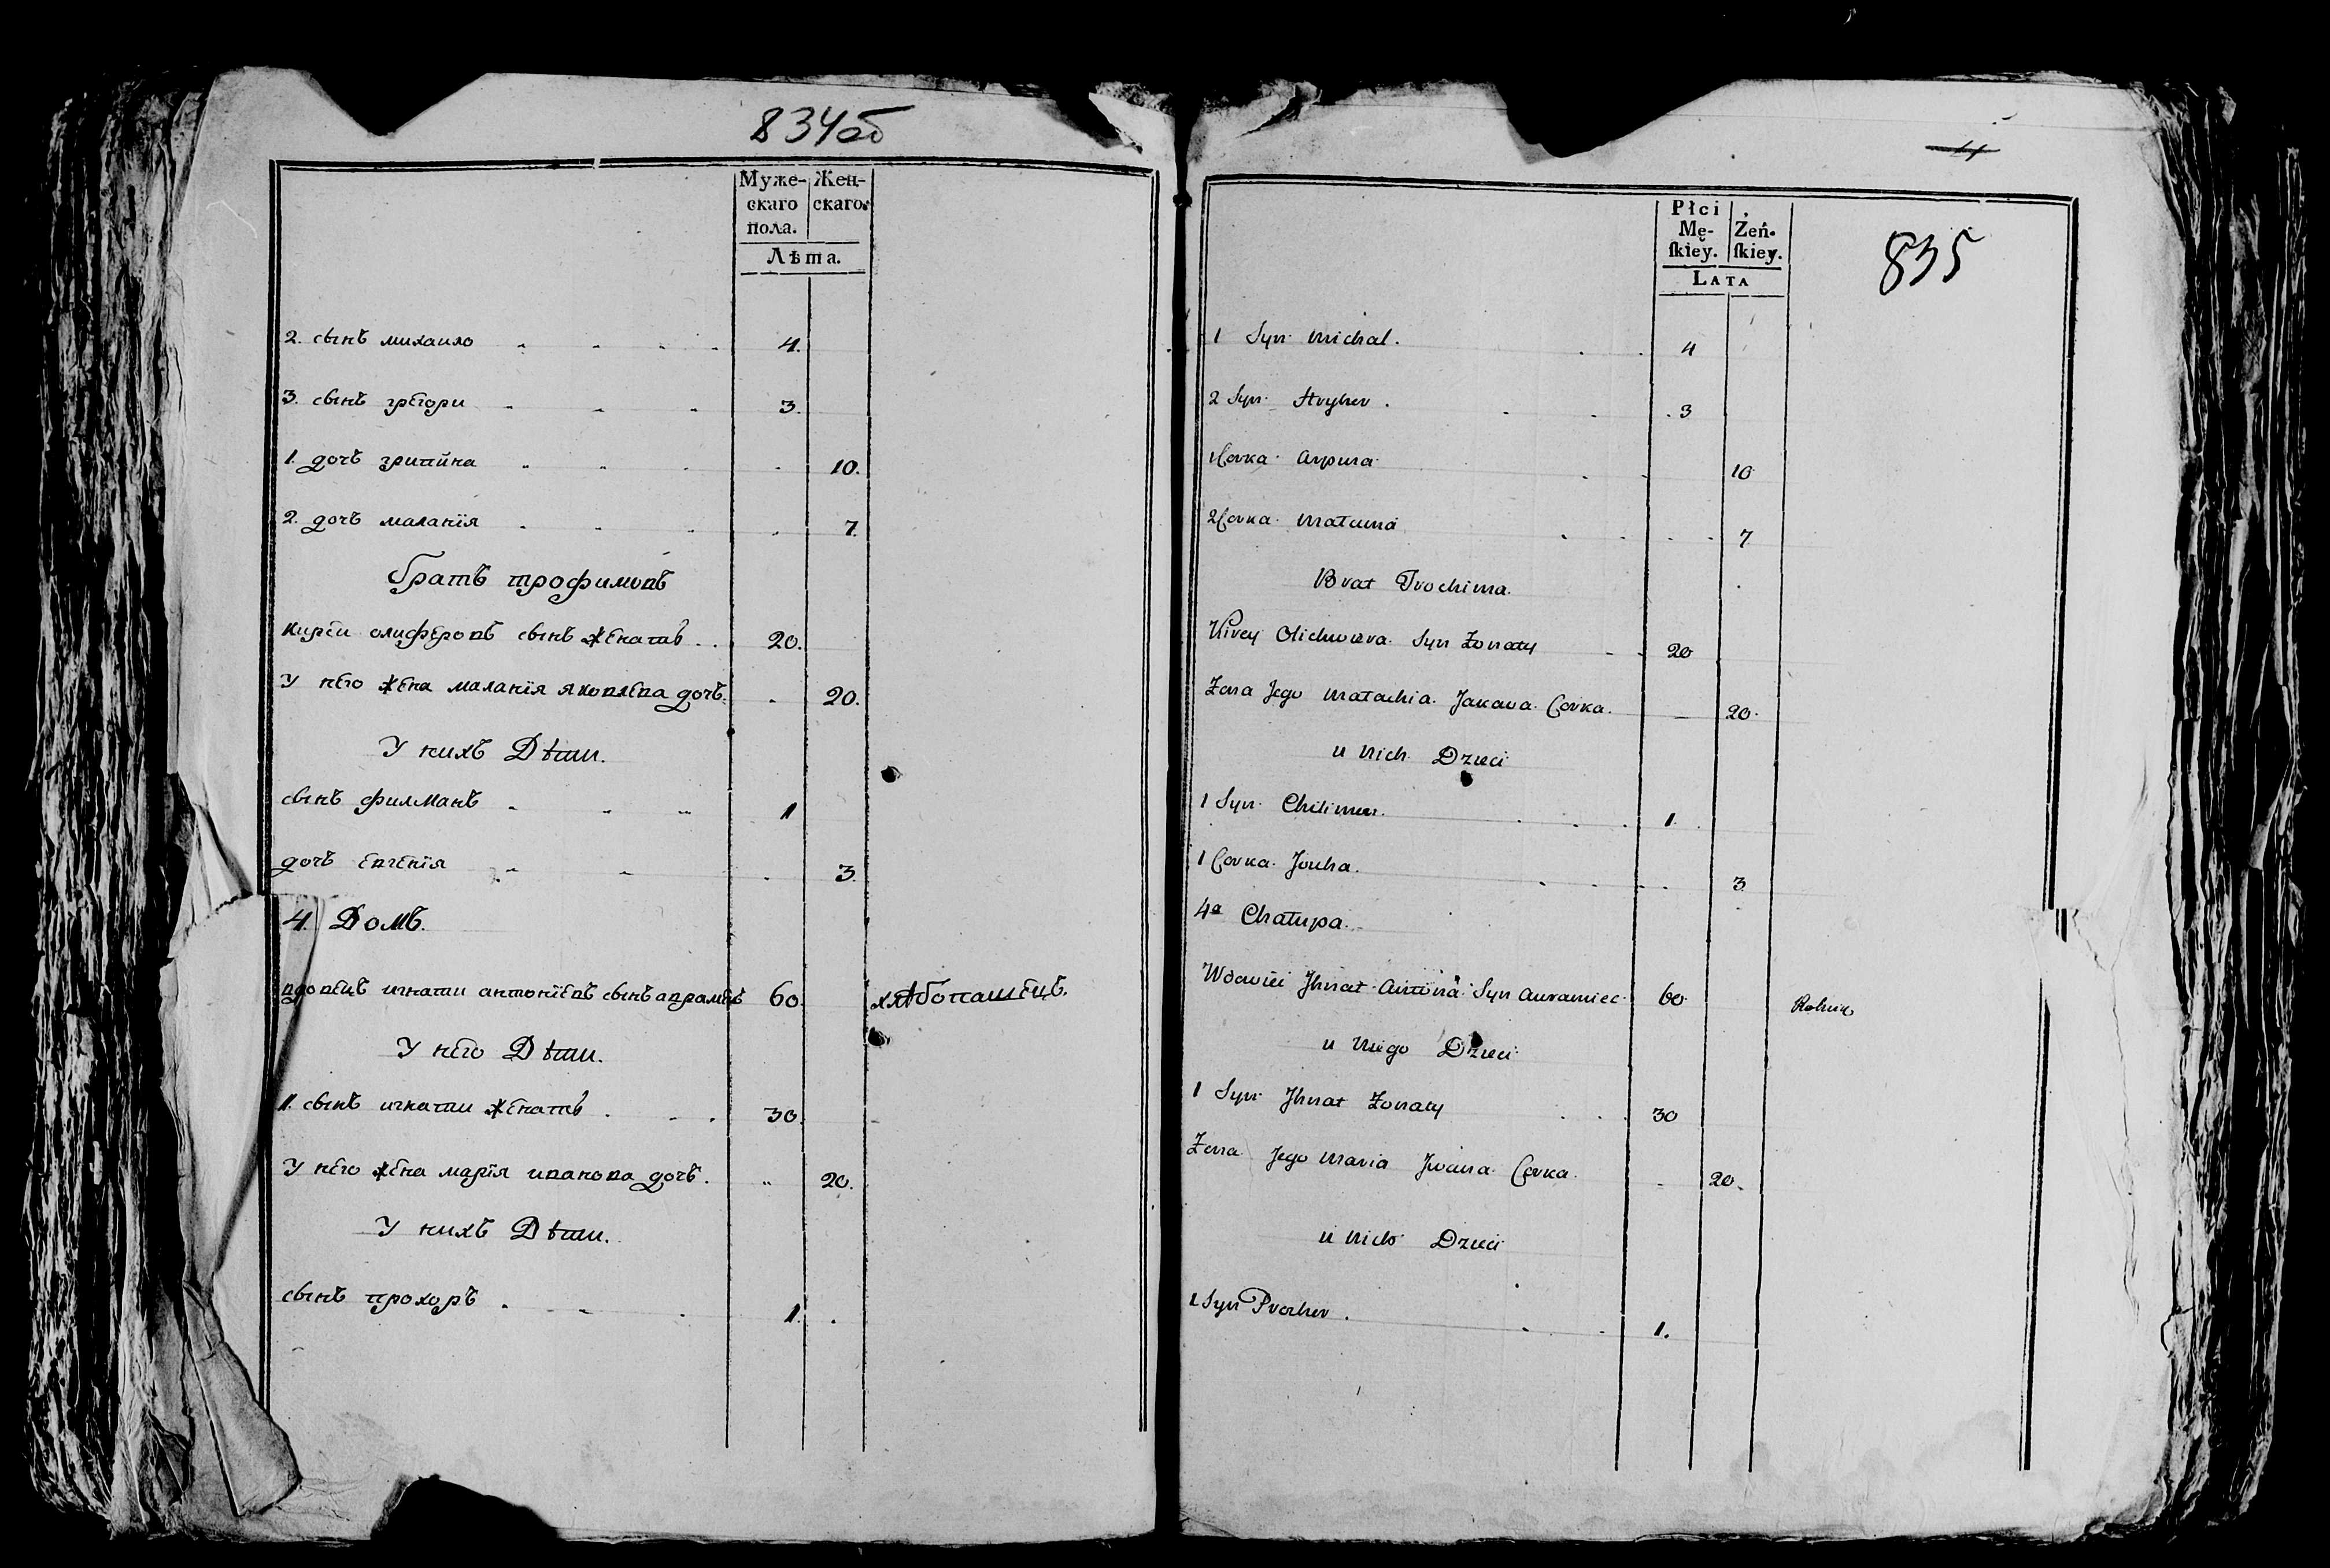 834об
Муже- Жен-
скаго скаго.
пола.
Лѣта.
2. сынъ михаило 4.
3. сынъ грегори 3.
1. дочъ грипина 10.
2. дочъ маланія 7.
братъ трофимовъ
кирѣи олиферовъ сынъ женатъ 20.
У него жена маланія яковлева дочъ. 20.
У нихъ Дѣти.
сынъ филманъ 1
дочъ евгенія 3.
4. Домъ.
вдовецъ игнати антоніевъ сынъ аврамецъ 60. хлѣбопашецъ.
У него Дѣти.
1. сынъ игнати женатъ 30.
У него жена марія иванова дочъ. 20.
У нихъ Дѣти.
сынъ прохоръ 1.
4
835
Płci
Mę- Żeń-
skiey. skiey.
LATA
1 Syn Michał. 4
2 Syn Hryhor. 3
1 Corka Arpina 10
2 Corka Małania 7
Brat Trochima.
Kirey Olichwiera Syn Żonaty 20
Żona Jego Małachia Jakawa Corka. 20
u Nich Dzieci
1 Syn Chilimon. 1.
1 Corka Jouha. 3
4a Chałupa.
Wdowiec Jhnat Antona Syn Auramiec 60 Rolnik
u Niego Dzieci
1 Syn Jhnat Żonaty 30
Żona Jego Maria Jwana Corka 20
u Nich Dzieci
1 Syn Prochor. 1.